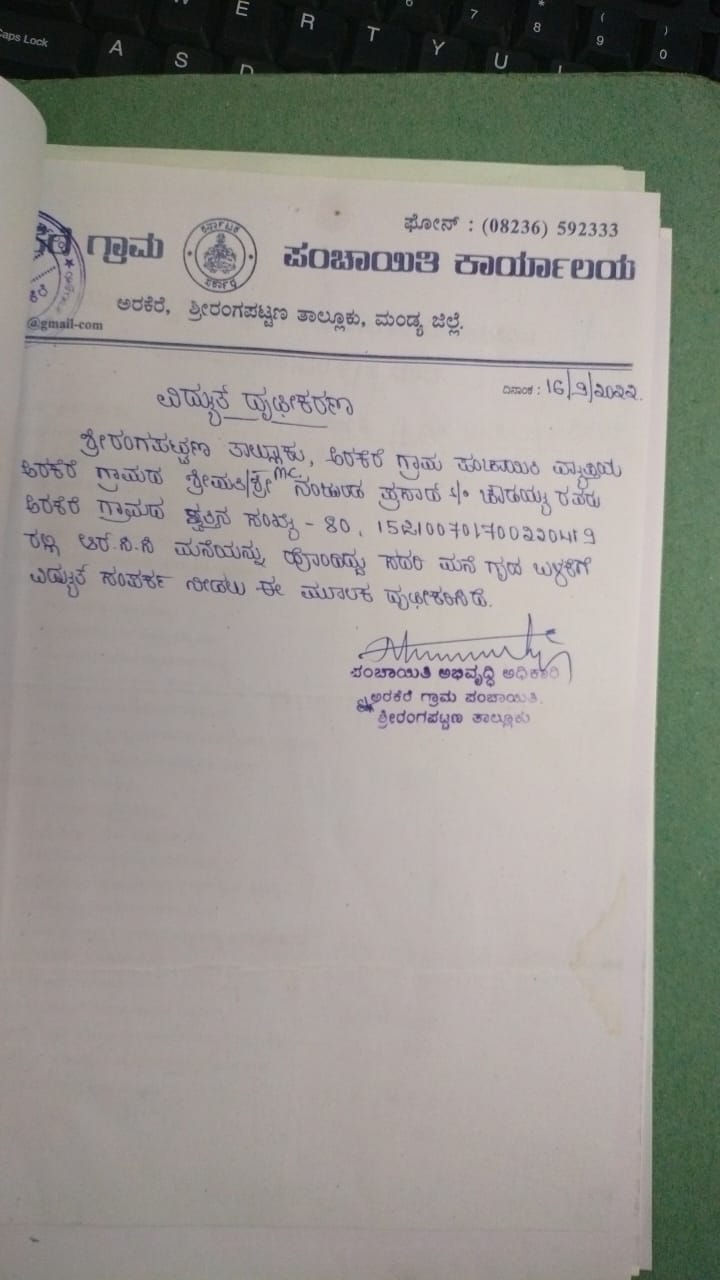 Caps Lock
W E R T Y U
A S D
6 7 * 8 ( 9 ) 0
ಫೋನ್ : (08236) 592333
ಕೆರೆ ಗ್ರಾಮ ಪಂಚಾಯಿತಿ ಕಾರ್ಯಾಲಯ
ಕರ್ನಾಟಕ ಸರ್ಕಾರ
ಅರಕೆರೆ, ಶ್ರೀರಂಗಪಟ್ಟಣ ತಾಲ್ಲೂಕು, ಮಂಡ್ಯ ಜಿಲ್ಲೆ.
@gmail-com
ದಿನಾಂಕ : 16/9/೨೦೨೨.
ವಿದ್ಯುತ್ ದೃಢೀಕರಣ
ಶ್ರೀರಂಗಪಟ್ಟಣ ತಾಲ್ಲೂಕು, ಅರಕೆರೆ ಗ್ರಾಮ ಪಂಚಾಯಿತಿ ವ್ಯಾಪ್ತಿಯ
ಅರಕೆರೆ ಗ್ರಾಮದ ಶ್ರೀಮತಿ/ಶ್ರೀ MC ನಂಜುಂಡ ಪ್ರಸಾದ್ s/o ಚೌಡಯ್ಯ ರವರು
ಅರಕೆರೆ ಗ್ರಾಮದ ಸ್ವತ್ತಿನ ಸಂಖ್ಯೆ - 80,
ರಲ್ಲಿ ಆರ್.ಸಿ.ಸಿ ಮನೆಯನ್ನು ಹೊಂದಿದ್ದು ಸದರಿ ಮನೆ ಗೃಹ ಬಳಕೆಗೆ
ವಿದ್ಯುತ್ ಸಂಪರ್ಕ ನೀಡಲು ಈ ಮೂಲಕ ದೃಢೀಕರಿಸಿದೆ.
ಪಂಚಾಯಿತಿ ಅಭಿವೃದ್ಧಿ ಅಧಿಕಾರಿ
ಅರಕೆರೆ ಗ್ರಾಮ ಪಂಚಾಯಿತಿ.
ಶ್ರೀರಂಗಪಟ್ಟಣ ತಾಲ್ಲೂಕು